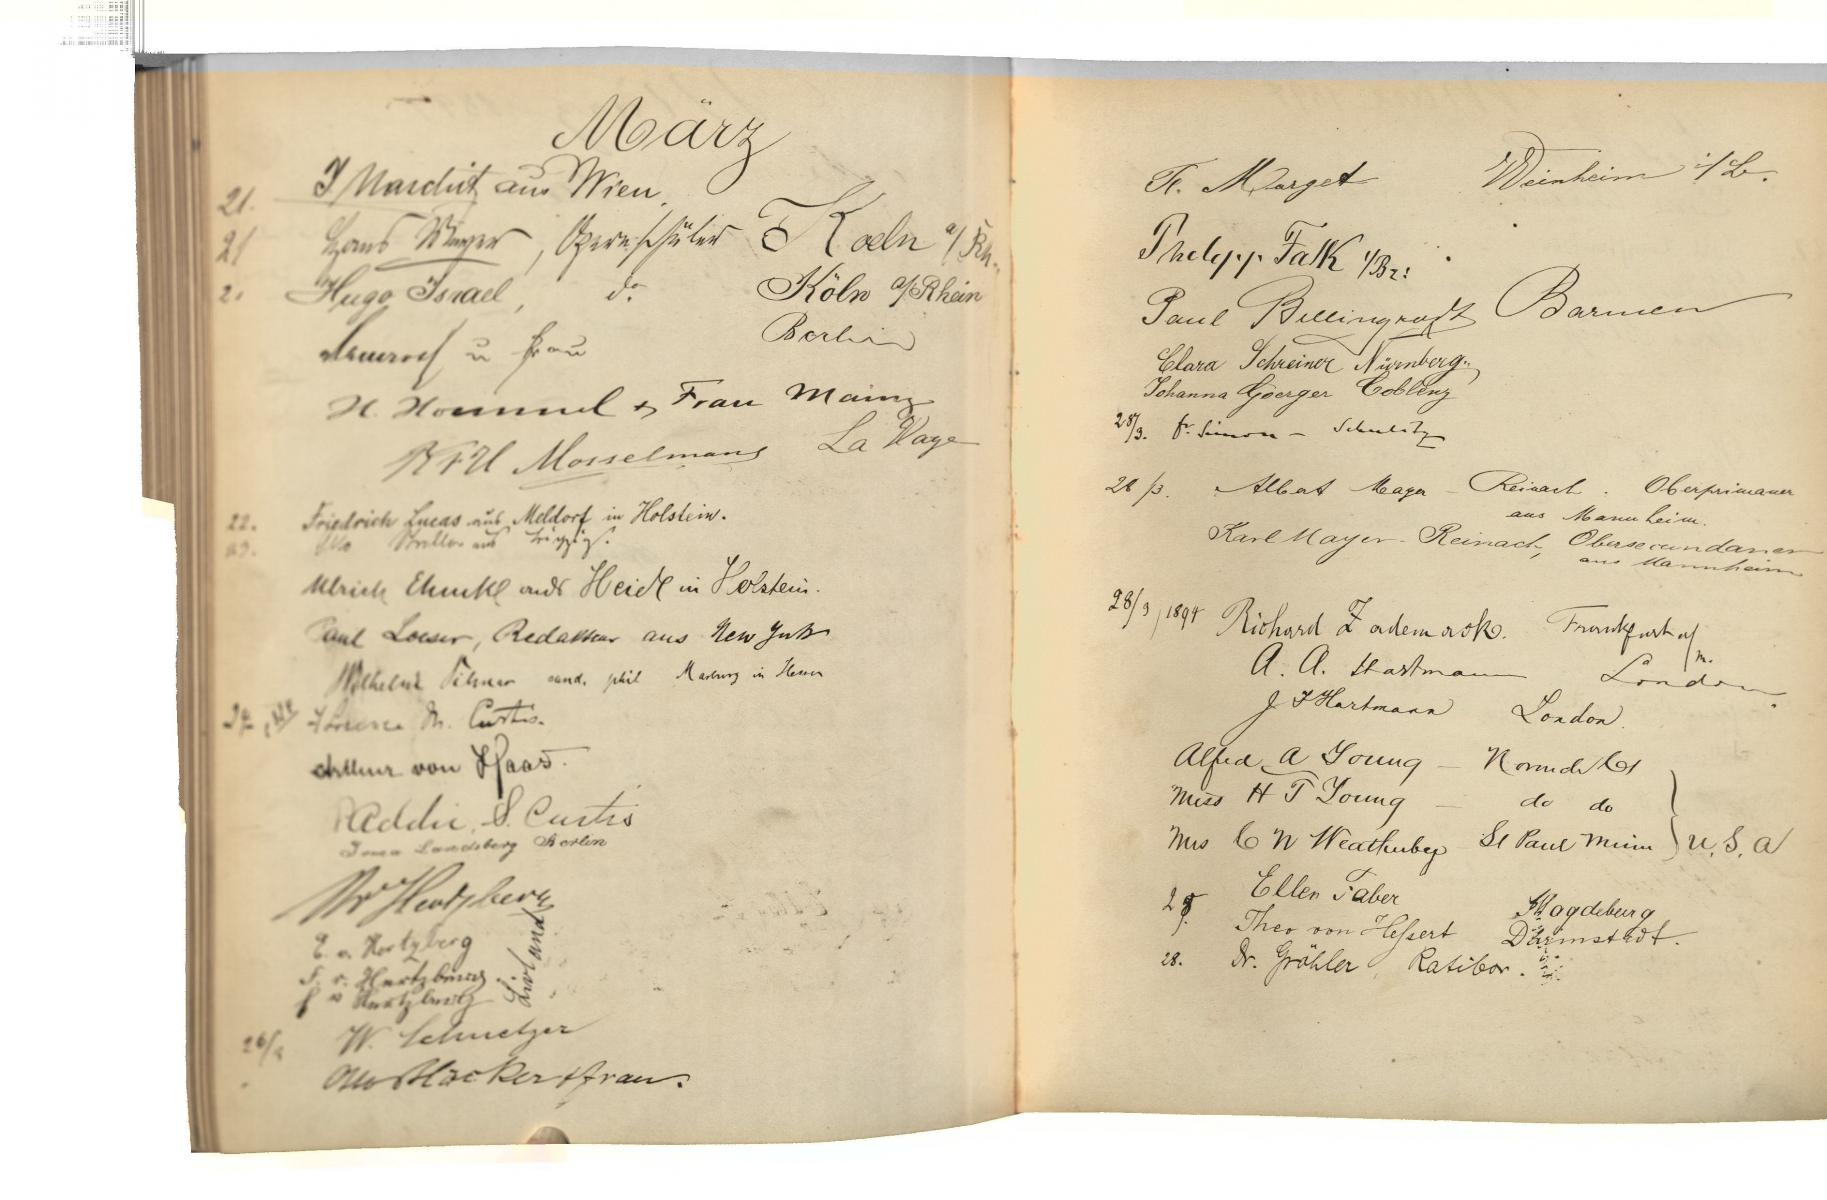 März
21. J Naschit aus Wien.
21 Hans Mayer, Opernschüler Koeln a/Rh.
2. Hugo Israel, do Köln a/Rhein
u Frau Berlin
H. Hommel & Frau Mainz
Mosselmans La Haye
22. Friedrich Lucas aus Meldorf in Holstein.
23. Otto aus Leipzig.
Ulrich aus Heide in Holstein.
Paul Loeser, Redakteur aus New York
Wilhelm cand. phil Marburg in Hessen
M. Curtis.
Arthur von Haas.
Addie S. Curtis
Landsberg Berlin
Hertzberg
E. v. Hertzberg
F. v. Hertzberg
v Hertzberg
Livland
26/3 W. Schmelzer
Otto Häcker & frau.
Fr. Marget Weinheim i/B.
Philipp Falk i/Br:
Paul Bellingrodt Barmen
Clara Schreiner Nürnberg.
Johanna Goerger Coblenz
28/3. fr. Simon –
28/3. Albert Mayer – Reinach. Oberprimaner
aus Mannheim.
Karl Mayer-Reinach, Obersecundaner
aus Mannheim
28/3 1894 Richard Frankfurt a/m.
A. A. Hartmann London.
J F Hartmann London.
Alfred A Young –
Miss H T Young – do do
Mrs C N St Paul Minn } U.S.A
28. Ellen Faber Magdeburg
Theo von Hessert Darmstadt.
28. Dr. Gröhler, Ratibor.